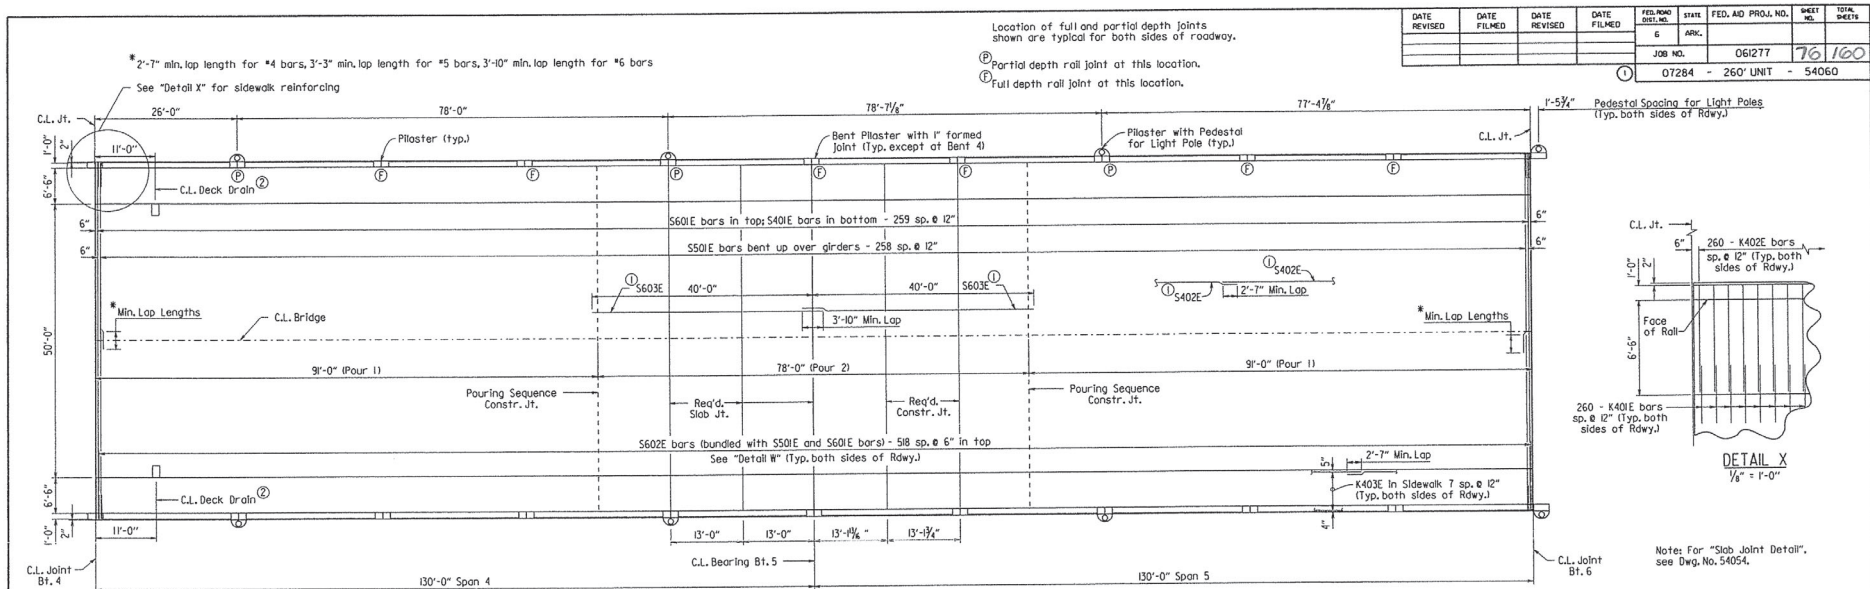 Location of full and partial depth joints
shown are typical for both sides of roadway.
Ⓟ Partial depth rail joint at this location.
Ⓕ Full depth rail joint at this location.
DATE REVISED
DATE FILMED
DATE REVISED
DATE FILMED
FED. ROAD DIST. NO.
STATE
FED. AID PROJ. NO.
SHEET NO.
TOTAL SHEETS
6
ARK.
JOB NO.
061277
76
160
① 07284 - 260' UNIT - 54060
* 2'-7" min. lap length for #4 bars, 3'-3" min. lap length for #5 bars, 3'-10" min. lap length for #6 bars
See "Detail X" for sidewalk reinforcing
C.L. Jt.
26'-0"
78'-0"
78'-7⅛"
77'-4⅞"
1'-5¾"
Pedestal Spacing for Light Poles
(Typ. both sides of Rdwy.)
1'-0"
2"
11'-0"
Pilaster (typ.)
Bent Pilaster with 1" formed
joint (Typ. except at Bent 4)
Pilaster with Pedestal
for Light Pole (typ.)
C.L. Jt.
Ⓟ
Ⓕ
Ⓕ
Ⓟ
Ⓕ
Ⓕ
Ⓟ
Ⓕ
Ⓕ
6'-6"
C.L. Deck Drain ②
6"
S601E bars in top; S401E bars in bottom - 259 sp. @ 12"
6"
6"
S501E bars bent up over girders - 258 sp. @ 12"
6"
① S603E
40'-0"
40'-0"
① S603E
3'-10" Min. Lap
① S402E
① S402E
2'-7" Min. Lap
* Min. Lap Lengths
C.L. Bridge
* Min. Lap Lengths
50'-0"
91'-0" (Pour 1)
78'-0" (Pour 2)
91'-0" (Pour 1)
Pouring Sequence
Constr. Jt.
Req'd.
Slab Jt.
Req'd.
Constr. Jt.
Pouring Sequence
Constr. Jt.
S602E bars (bundled with S501E and S601E bars) - 518 sp. @ 6" in top
See "Detail W" (Typ. both sides of Rdwy.)
5"
2'-7" Min. Lap
K403E in Sidewalk 7 sp. @ 12"
(Typ. both sides of Rdwy.)
4"
6'-6"
C.L. Deck Drain ②
1'-0"
2"
11'-0"
13'-0"
13'-0"
13'-1¾"
C.L. Joint
Bt. 4
C.L. Bearing Bt. 5
C.L. Joint
Bt. 6
130'-0" Span 4
130'-0" Span 5
C.L. Jt.
6"
260 - K402E bars
sp. @ 12" (Typ. both
sides of Rdwy.)
1'-0"
2"
Face
of Rail
6'-6"
260 - K401E bars
sp. @ 12" (Typ. both
sides of Rdwy.)
DETAIL X
⅛" = 1'-0"
Note: For "Slab Joint Detail",
see Dwg. No. 54054.